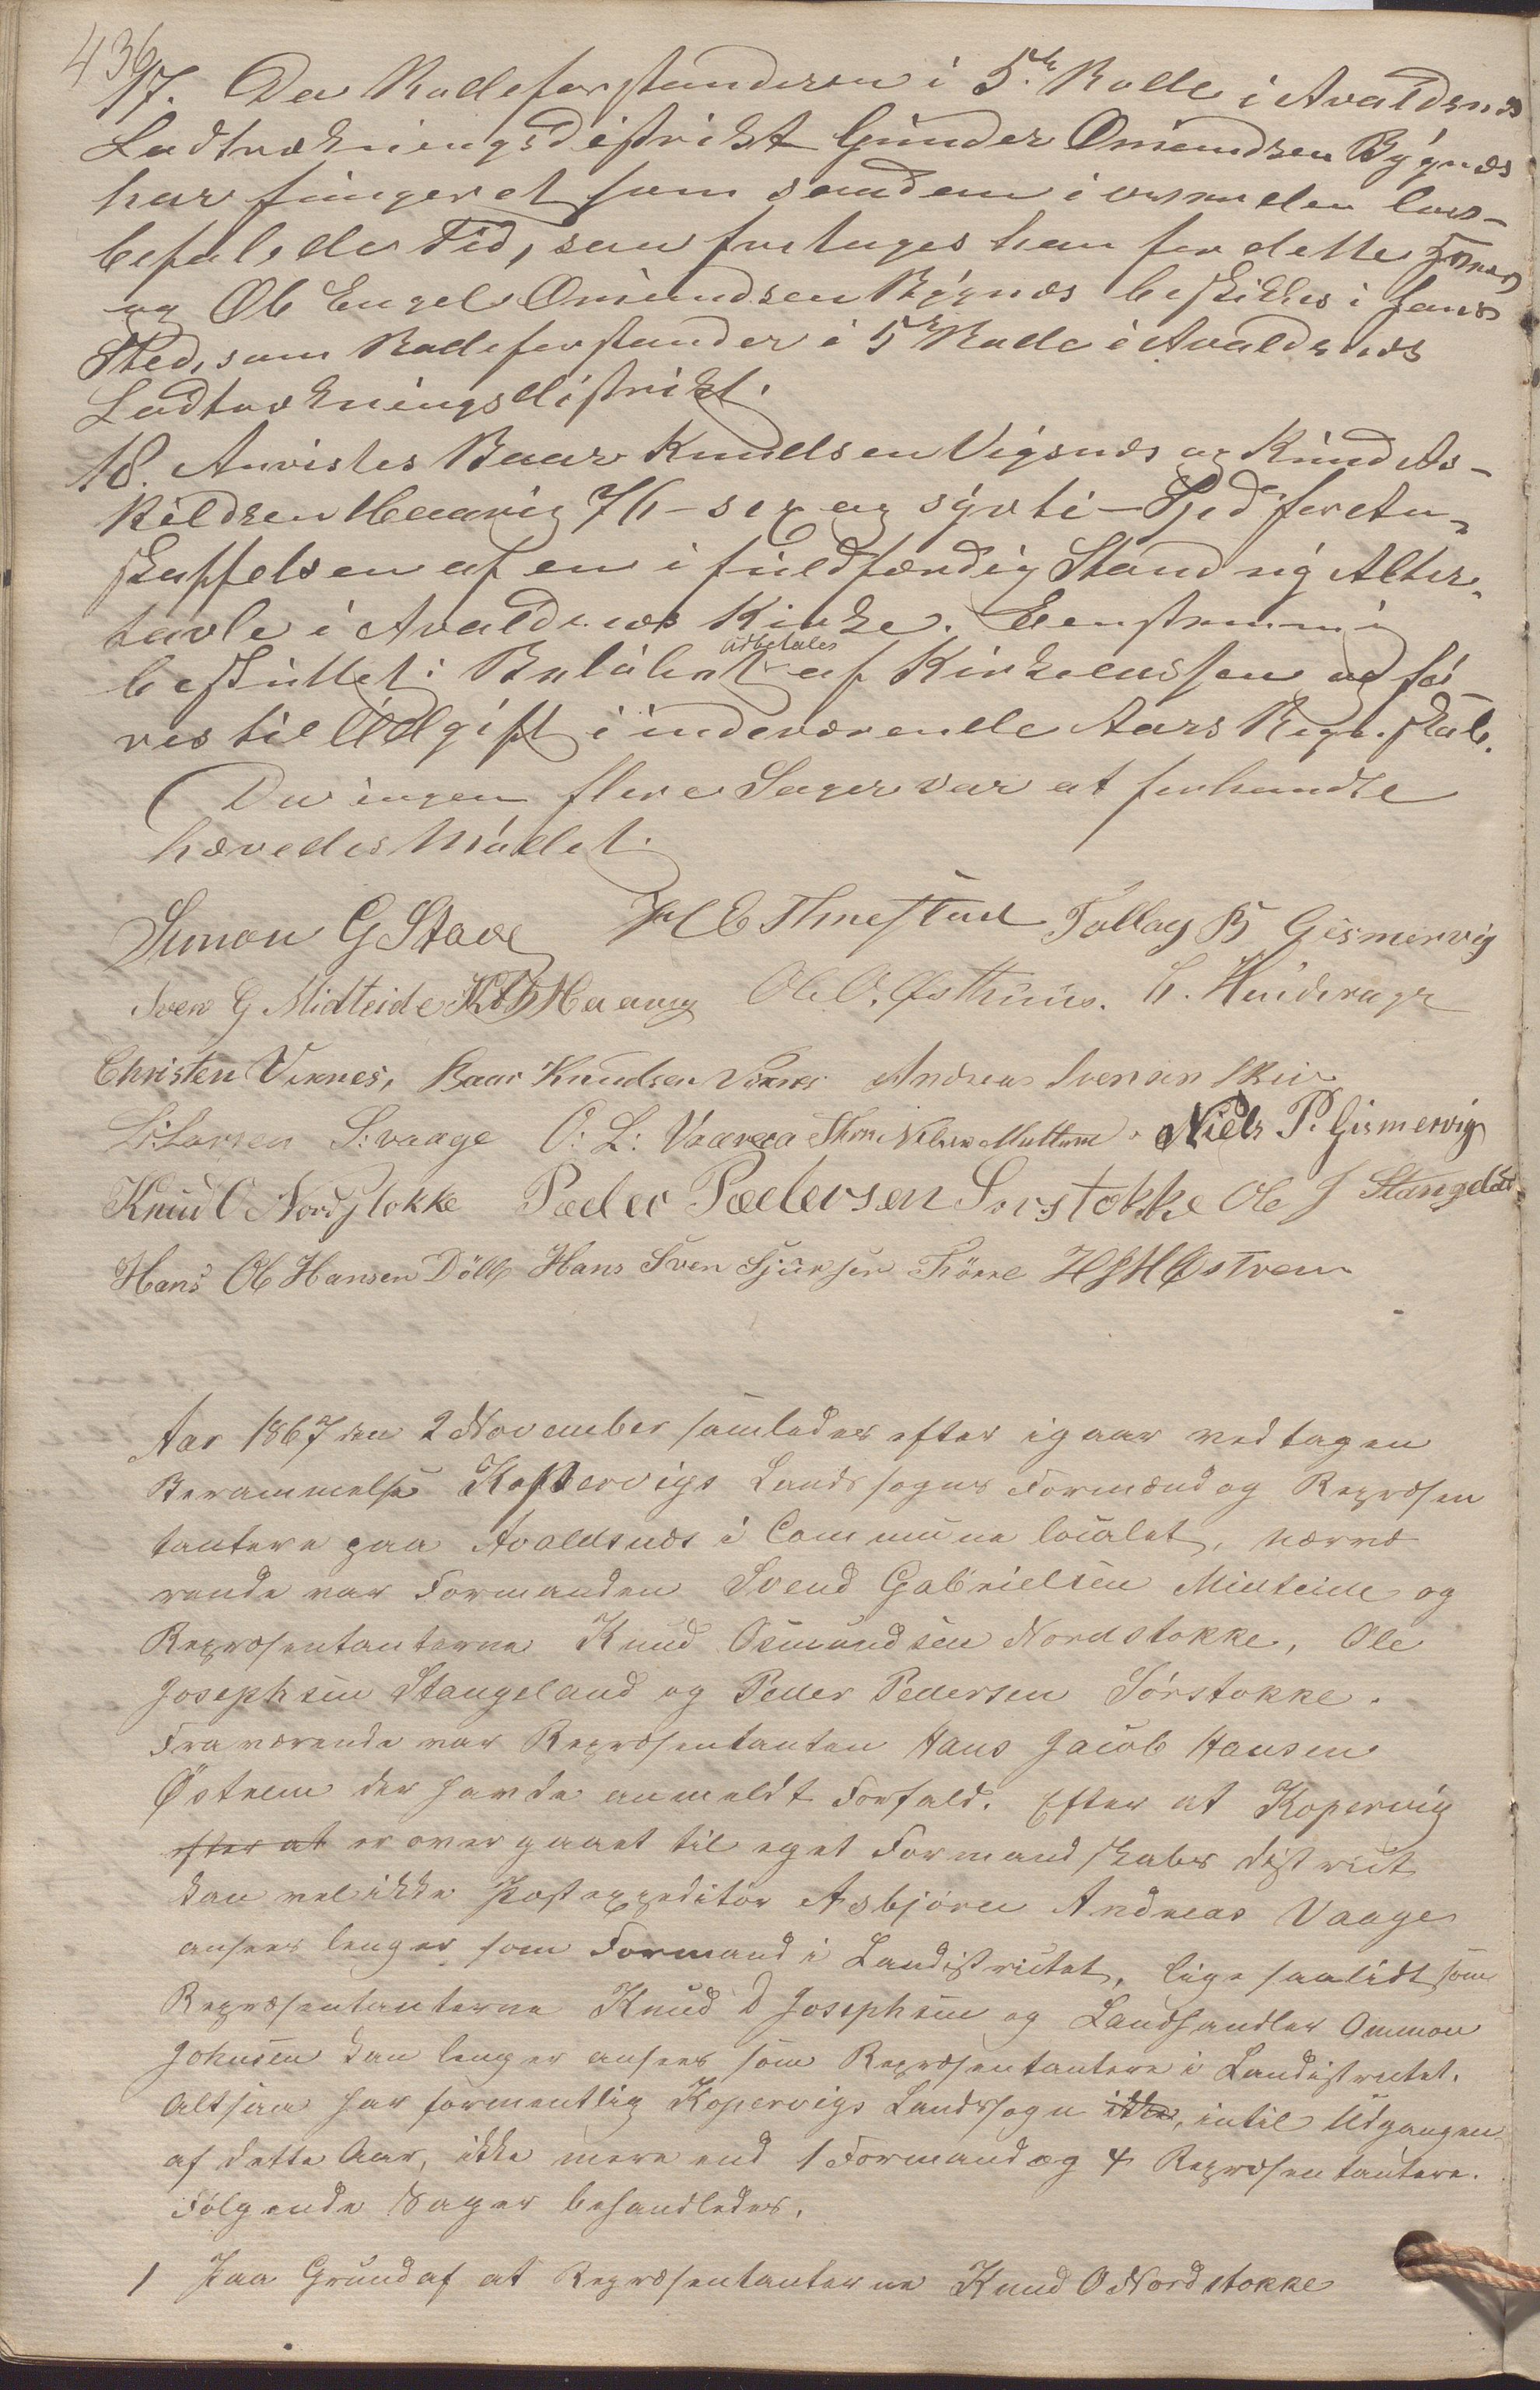 436
17. Da Rodeforstanderen i 5te Rode i Avaldsnæs
Lodtrækningsdistrikt Gunder Omundsen Bygnæs
har fungeret som saadan i over den lov-
befalede Tid, saa fritages han for dette
og Ole Engel Omundsen Bygnæs beskikkes i hans
Sted, som Rodeforstander i 5te Rode i Avaldsnæs
Lodtrækningsdistrikt.
18. Anvistes Baar Knudsen Vigsnæs og Knud As-
kildsen Haavig 76 - sex og syvti - Spd for An-
skaffelsen af en i fuldfærdig Stand ny Alter-
tavle i Avaldsnæs Kirke. Eenstemmig
udbetales
besluttet: Beløbet af Kirkecassen og fø-
res til Udgift i indeværende Aars Regnskab.
Da ingen flere Sager var at forhandle
hævedes Mødet.
Simon G Stave Tollag B Gismervig
Sven G Midteide K A Haavig Ole O. Østhuus. L. Hinderager
Christen Vixnes, Baar Knudsen Vixnes Andreas Svensen Skeie
L: Larsen S: vaage O: L: Vaaraa Thore Nilsen Mattre Niels P. Gismervig
Knud O Nordstokke Pæder Pædersen Sørstokke Ole J Stangeland
Hans Ole Hansen Døll Hans Sven Sjursen H J H Østrem
Aar 1867 den 2 November samledes efter igaar vedtagen
Berammelse Kopervigs Landssogns Formænd og Repræsen
tantere paa Avaldsnæs i Commune localet, nærvæ
rende var Formanden Svend Gabrielsen Midteide og
Repræsentanterne Knud Osmundsen Nordstokke, Ole
Josephsen Stangeland og Peder Pedersen Sørstokke.
Fraværende var Repræsentanten Hans Jacob Hansen
Østrem der havde anmeldt Forfald. Efter at Kopervig
efter at er overgaaet til eget Formandskabs district
kan vel ikke Postexpeditør Asbjørn Andreas Vaage
ansees lenger som Formand i Landistrictet, lige saalidt som
Repræsentanterne Knud D Josephsen og Landhandler Ommon
Johnsen kan lenger ansees som Repræsentantere i Landistrictet.
Altsaa har formentlig Kopervigs Landssogn ikke, intil Udgangen
af dette Aar, ikke mere end 1 Formand og 4 Repræsentantere.
Følgende Sager behandledes.
1 Paa Grund af at Repræsentanterne Knud O Nordstokke